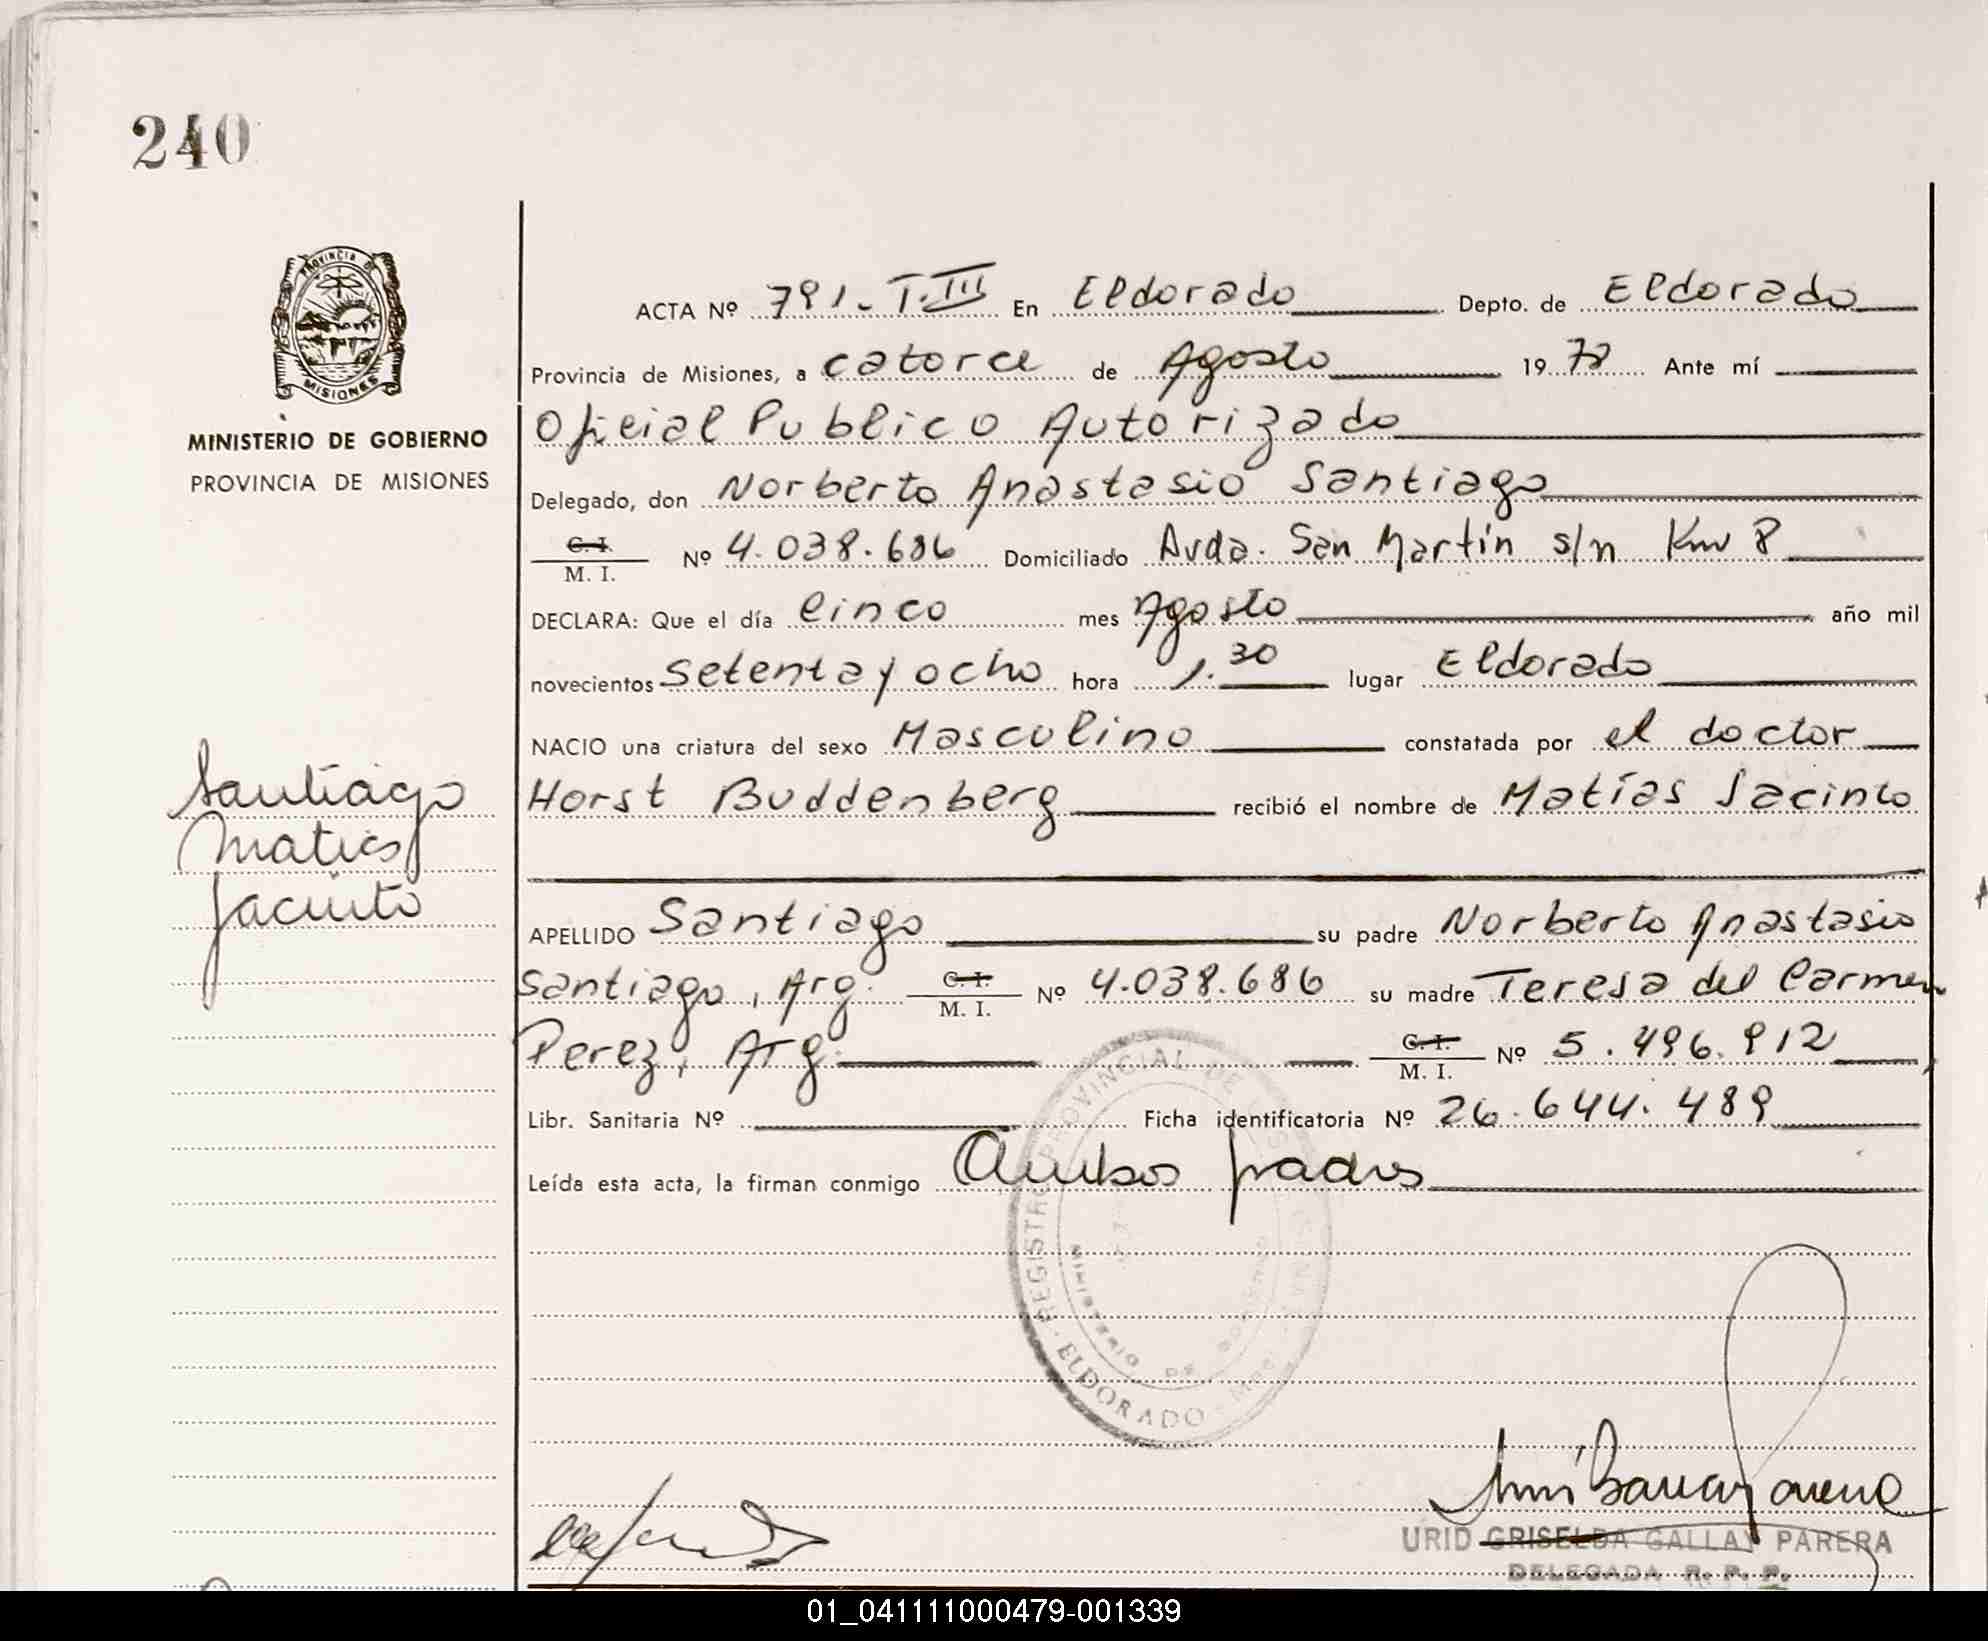 240
PROVINCIA DE
MISIONES
MINISTERIO DE GOBIERNO
PROVINCIA DE MISIONES
Santiago
Matias
Jacinto
ACTA Nº 791.-T.III En Eldorado Depto. de Eldorado
Provincia de Misiones, a catorce de Agosto 1978 Ante mí
Oficial Publico Autorizado
Delegado, don Norberto Anastasio Santiago
C. I.
M. I. Nº 4.038.686 Domiciliado Avda. San Martín s/n Km 8
DECLARA: Que el día Cinco mes Agosto año mil
novecientos Setenta y ocho hora 1.30 lugar Eldorado
NACIO una criatura del sexo Masculino constatada por el doctor
Horst Buddenberg recibió el nombre de Matías Jacinto
APELLIDO Santiago su padre Norberto Anastasio
Santiago, Arg. C. I. M. I. Nº 4.038.686 su madre Teresa del Carmen
Perez, Arg. C. I. M. I. Nº 5.496.912
Libr. Sanitaria Nº Ficha identificatoria Nº 26.644.489
Leída esta acta, la firman conmigo Ambos padres
REGISTRO PROVINCIAL DE LAS PERSONAS
MINISTERIO DE GOBIERNO
ELDORADO
URID GRISELDA GALLAY PARERA
DELEGADA R. P. P.
01_041111000479-001339